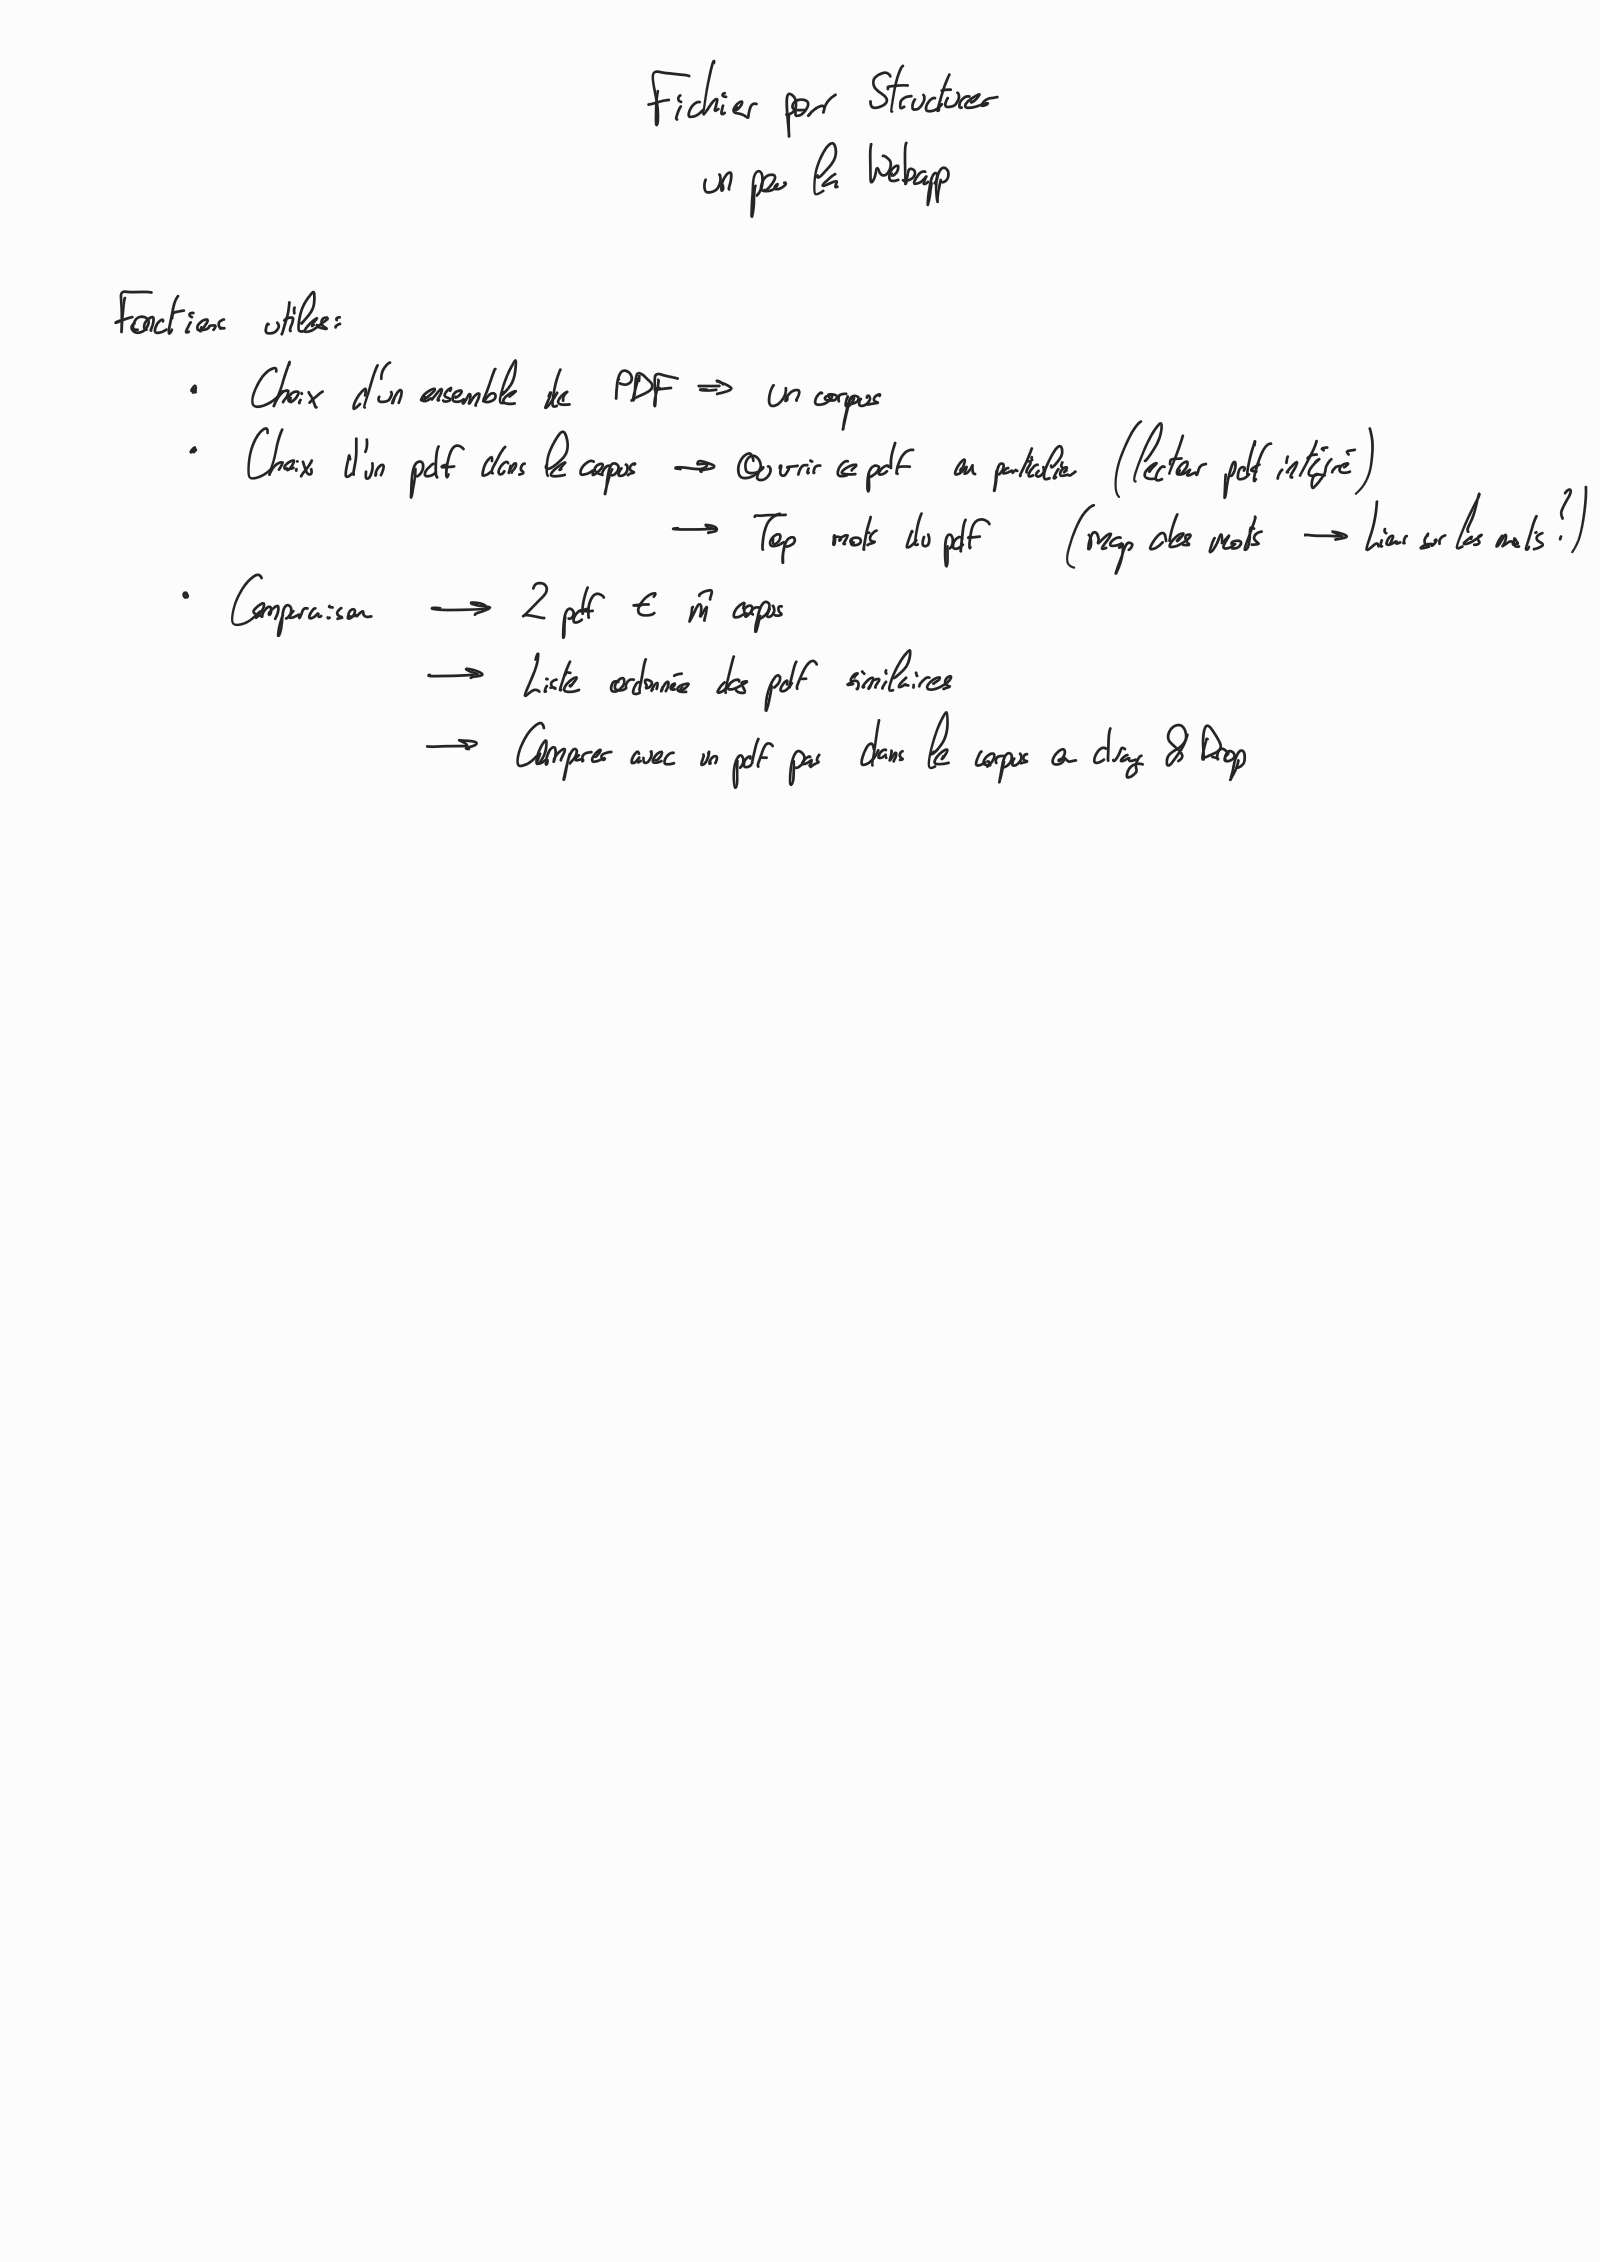 Fichier por Structurer
un peu la Webapp
Fonctions utiles:
• Choix d'un ensemble de PDF ⇒ un corpus
• Choix d'un pdf dans le corpus → Ouvrir ce pdf en parallèle (lecteur pdf intégré)
→ Top mots du pdf (map des mots → Lien sur les mots ?)
• Comparaison → 2 pdf ∈ m̂ corpus
→ Liste ordonnée des pdf similaires
→ Comparer avec un pdf pas dans le corpus en drag & Drop